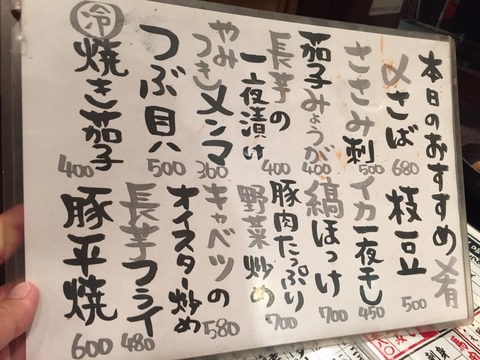 本日のおすすめ肴
〆さば 680
枝豆 500
ささみ刺 500
イカ一夜干し 450
茄子みょうが 400
縞ほっけ 700
長芋の
一夜漬け 400
豚肉たっぷり
野菜炒め 700
やみつきメンマ 360
キャベツの
オイスター炒め 580
つぶ貝 500
長芋フライ 480
冷 焼き茄子 400
豚平焼 600